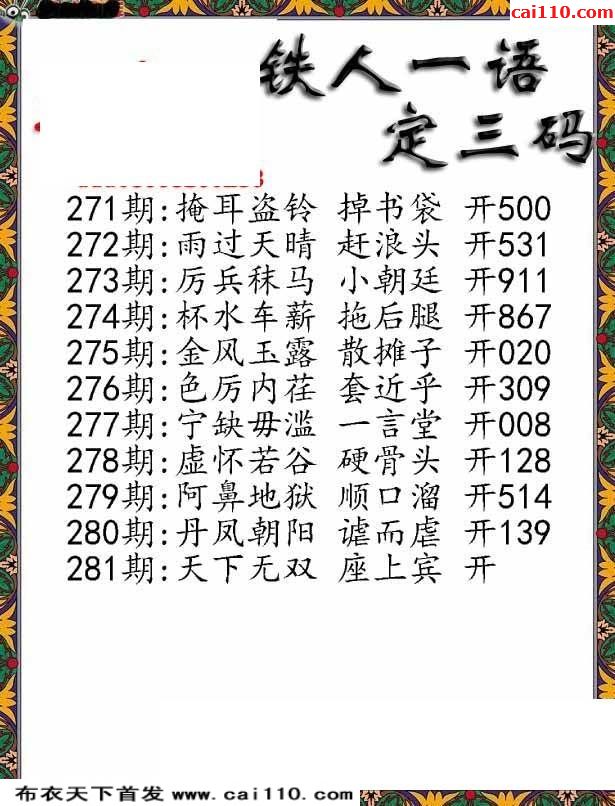 cai110.com
铁人一语
定三码
271期:掩耳盗铃 掉书袋 开500
272期:雨过天晴 赶浪头 开531
273期:厉兵秣马 小朝廷 开911
274期:杯水车薪 拖后腿 开867
275期:金风玉露 散摊子 开020
276期:色厉内荏 套近乎 开309
277期:宁缺毋滥 一言堂 开008
278期:虚怀若谷 硬骨头 开128
279期:阿鼻地狱 顺口溜 开514
280期:丹凤朝阳 谑而虐 开139
281期:天下无双 座上宾 开
布衣天下首发 www.cai110.com